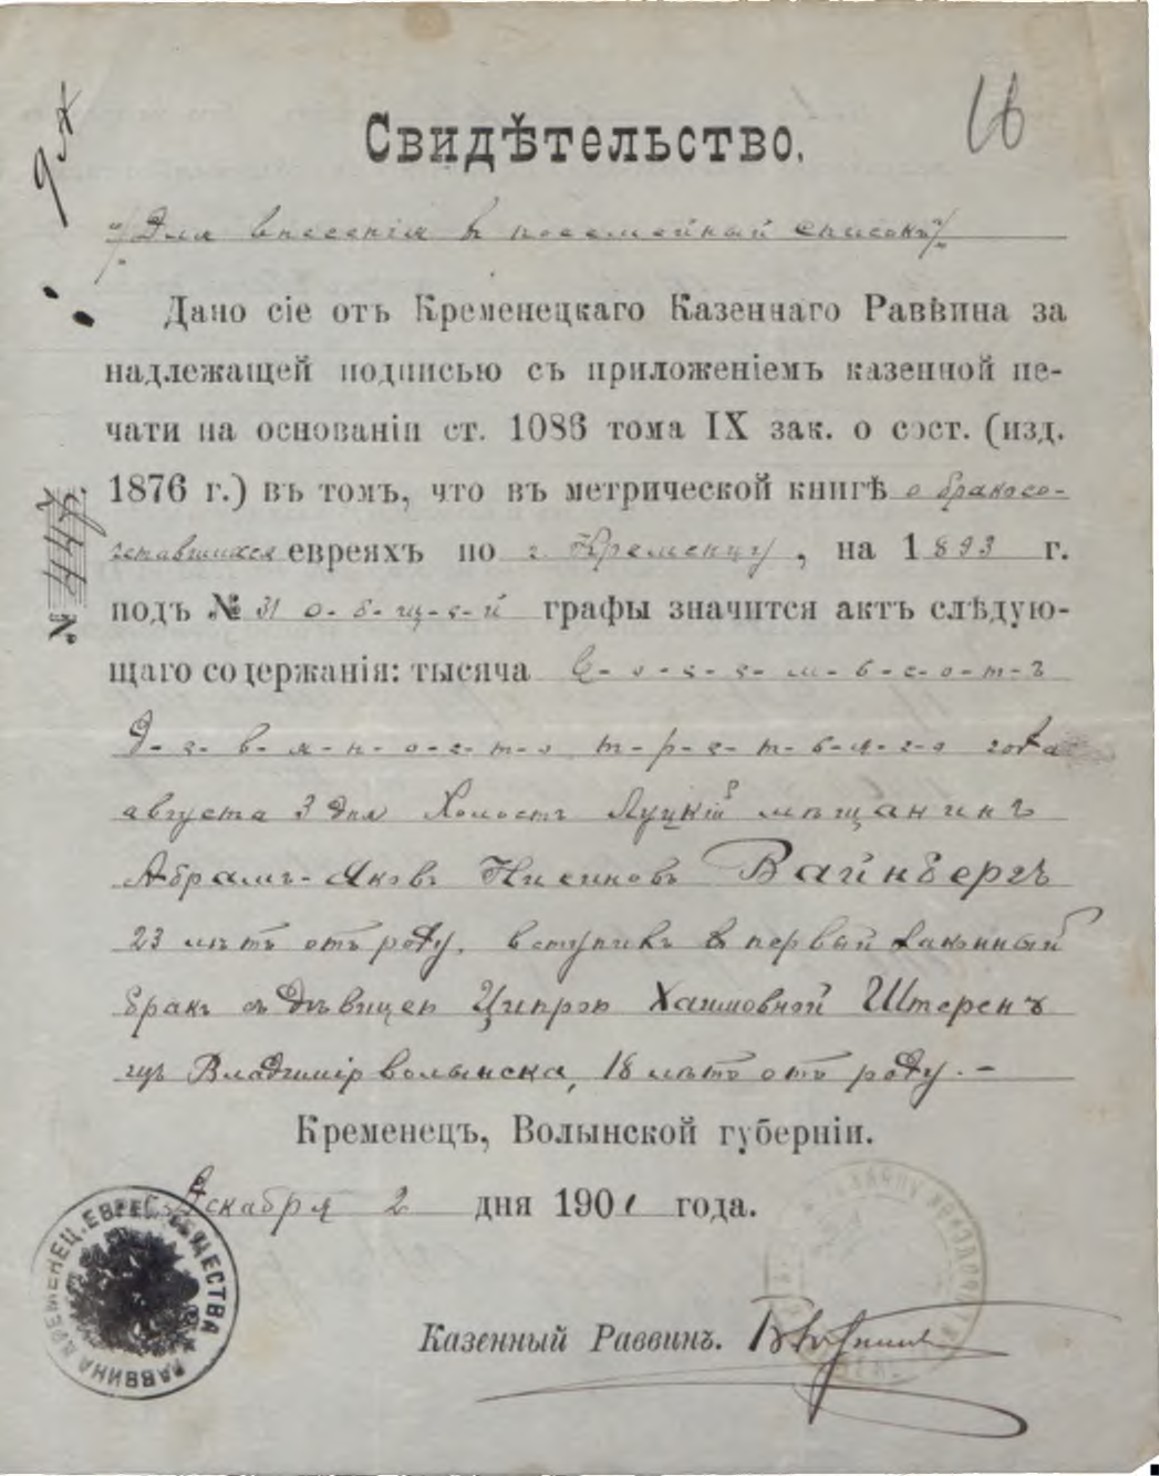 16
Свидѣтельство.
"/Для внесенія въ посемейный списокъ/"
Дано сіе отъ Кременецкаго Казеннаго Раввина за
надлежащей подписью съ приложеніемъ казенной пе-
чати на основаніи ст. 1086 тома IX зак. о сост. (изд.
1876 г.) въ томъ, что въ метрической книгѣ о бракосо-
четавшихся евреяхъ по г. Кременцу, на 1893 г.
подъ № 31 о-б-щ-е-й графы значится актъ слѣдую-
щаго содержанія: тысяча в-о-с-е-м-ь-с-о-т-ъ
д-е-в-я-н-о-с-т-о т-р-е-т-ь-я-г-о года
августа 3 дня Холостъ Луцкій мѣщанинъ
Абрамъ-Яковъ Нисиновъ Вайнбергъ
23 лѣтъ отъ роду, вступилъ в первый законный
бракъ съ дѣвицею Ципрою Хаимовной Штеренъ
изъ Владимірволынска, 18 лѣтъ отъ роду. -
Кременецъ, Волынской губерніи.
Декабря 2 дня 1901 года.
Казенный Раввинъ.
№ 447.
РАВВИНА КРЕМЕНЕЦ. ЕВРЕЙС. ОБЩЕСТВА